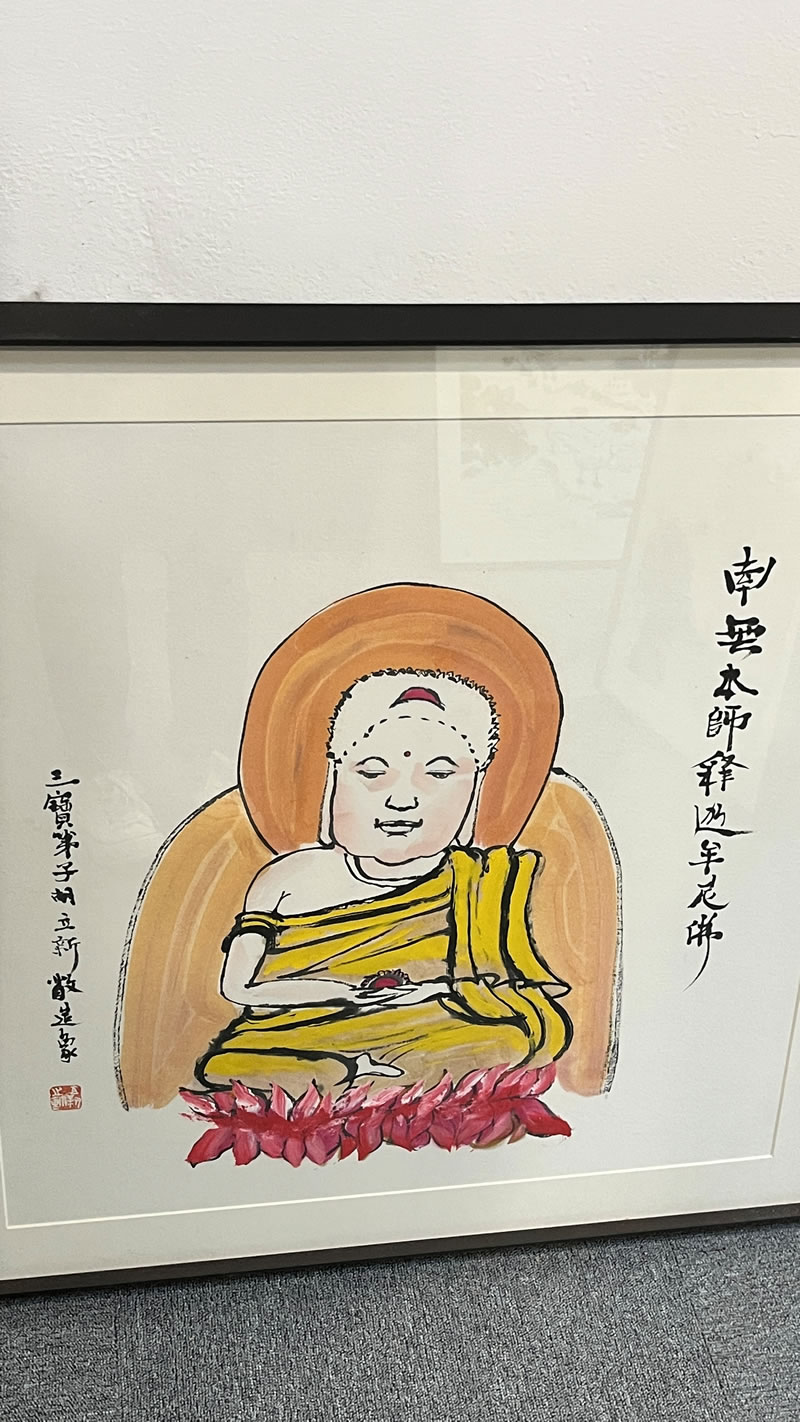 南無本師释迦牟尼佛
三寶弟子胡立新敬造象